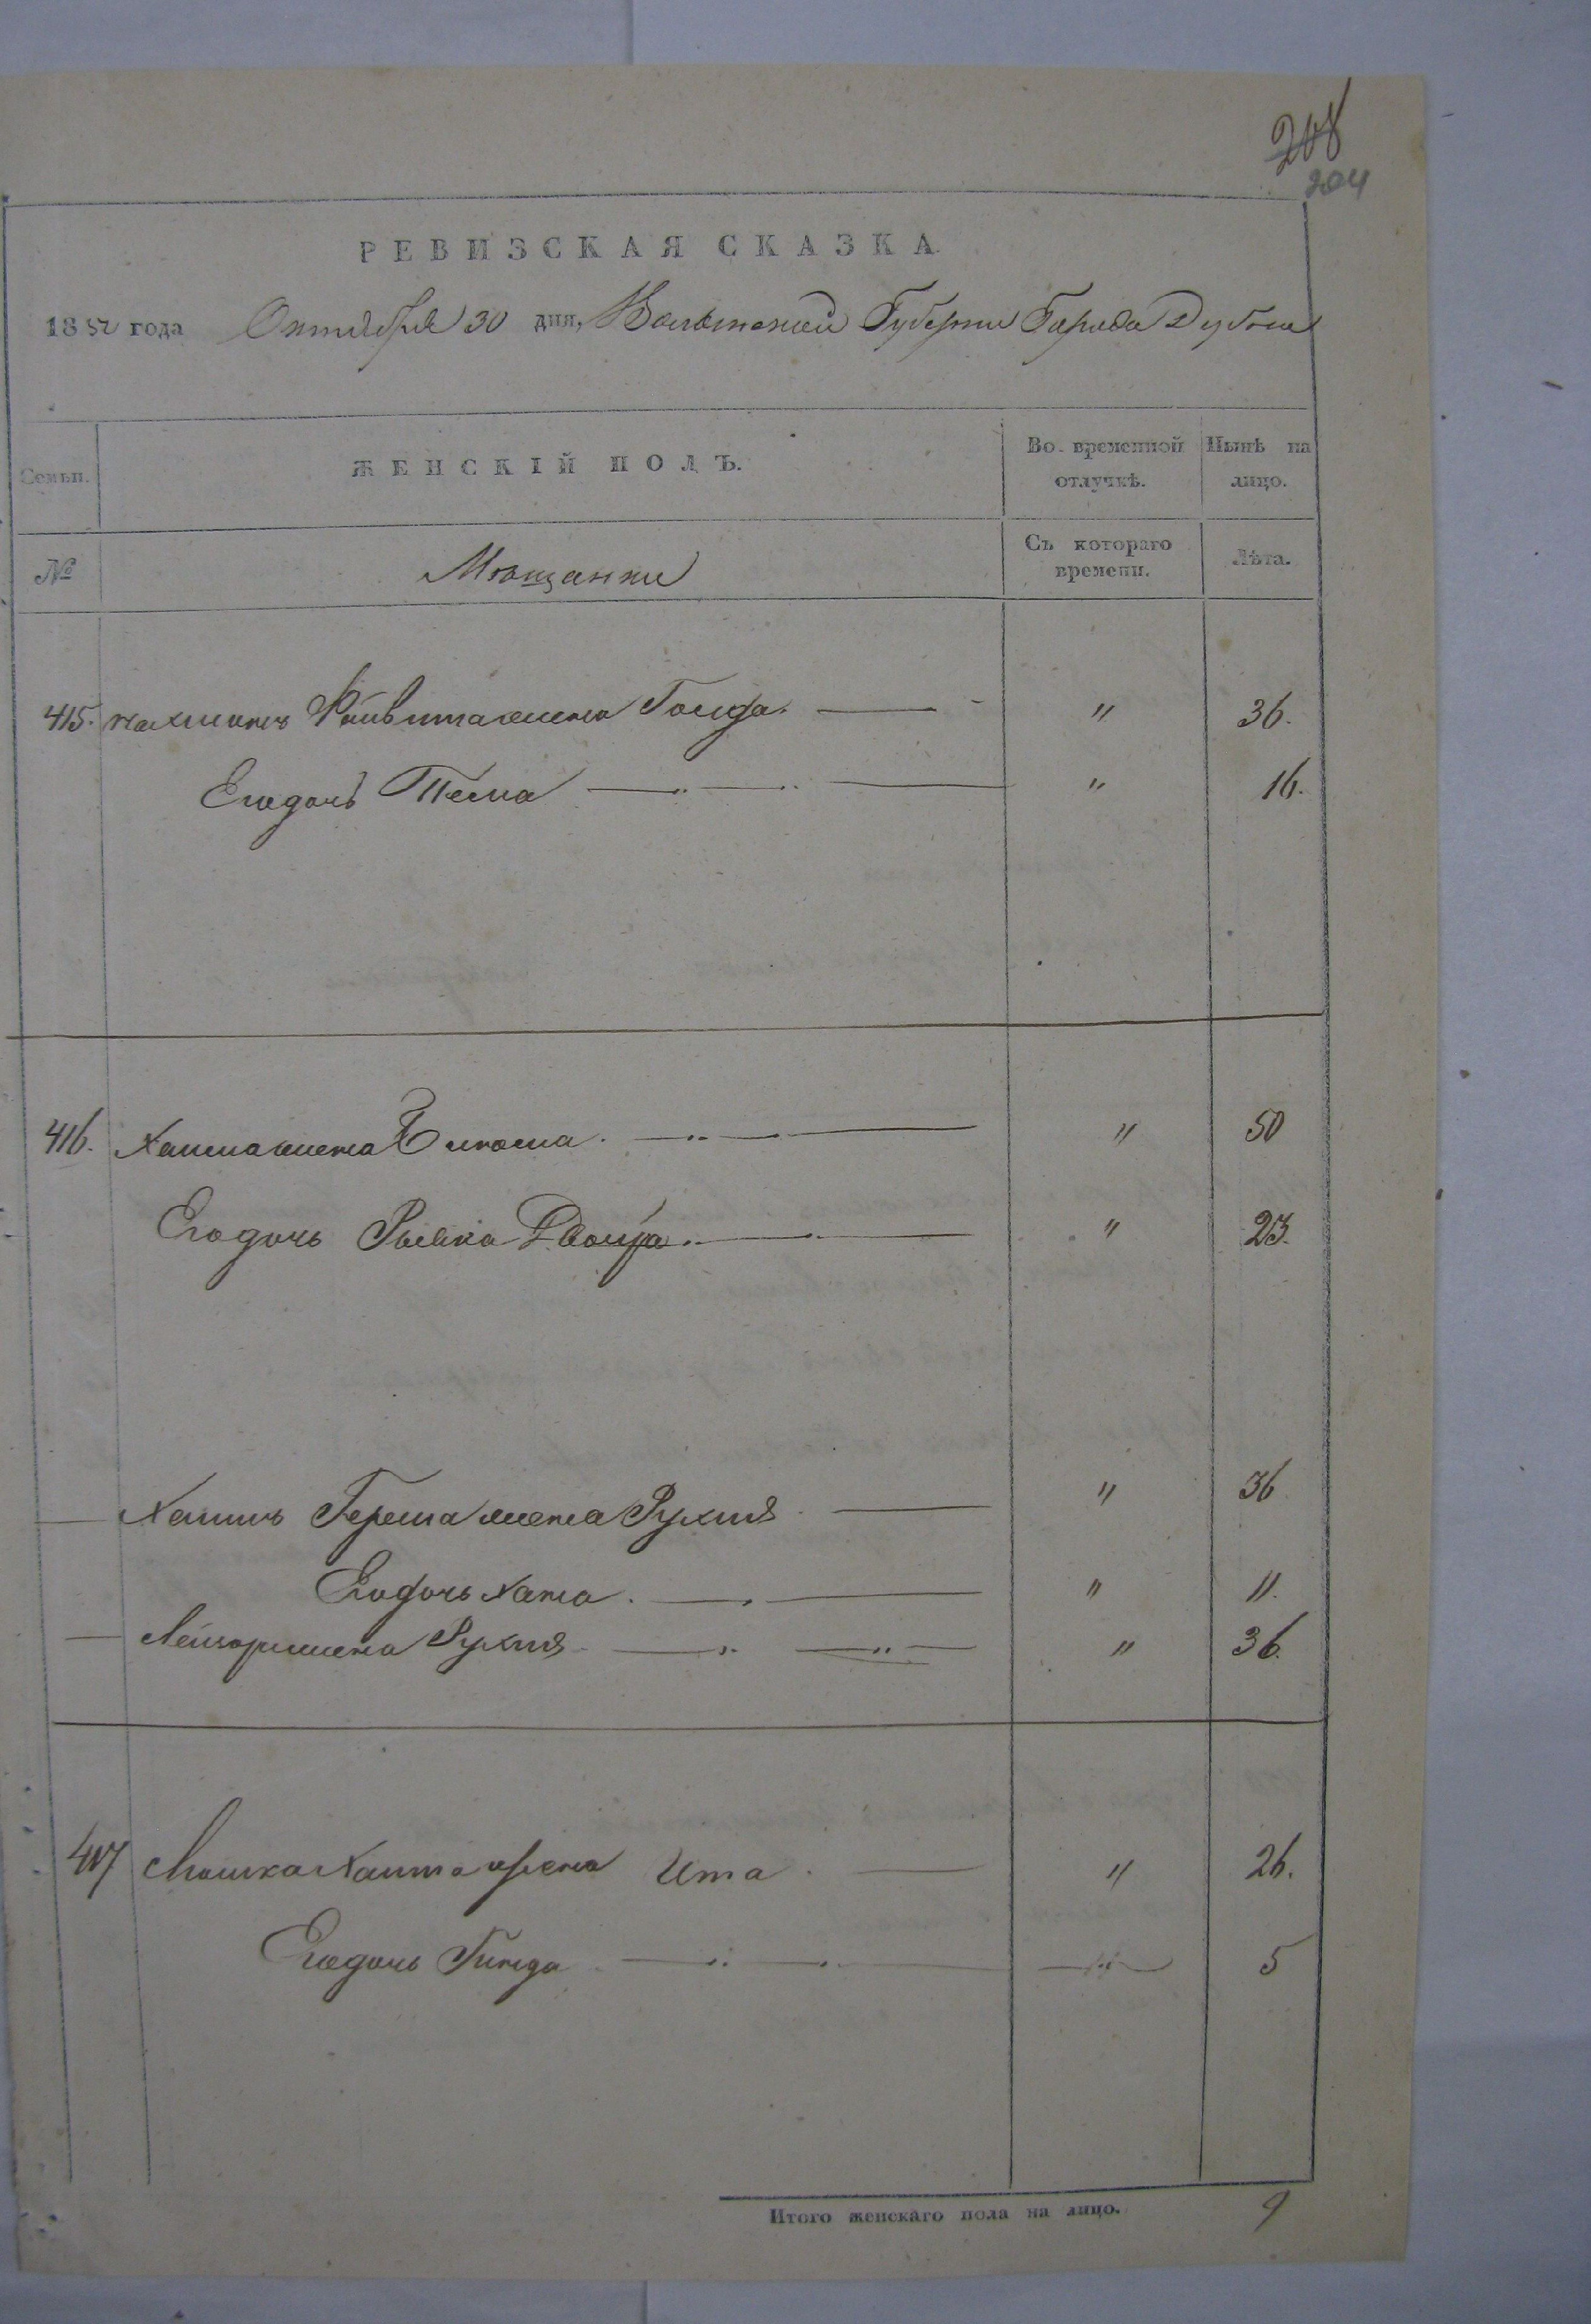 208
204
РЕВИЗСКАЯ СКАЗКА
1852 года Октября 30 дня, Волынской Губерни Города Дубна
Семьи. ЖЕНСКІЙ ПОЛЪ. Во временной отлучкѣ. Нынѣ на лицо.
№ Мѣщанки Съ котораго времени. Лѣта.
415. Нахманъ Файвиша жена Голда. — " 36.
Его дочь Песма — " 16.
416. Хаима жена — " 50
Его дочь Рывка Двойра. — " 23.
— Хаимъ Герша жена Рухля — " 36
Его дочь Хана. — " 11.
— жена Рухля — " 36.
417 Мошка Хаима жена Ита. — " 26.
Его дочь Гинда — " 5
Итого женскаго пола на лицо. 9